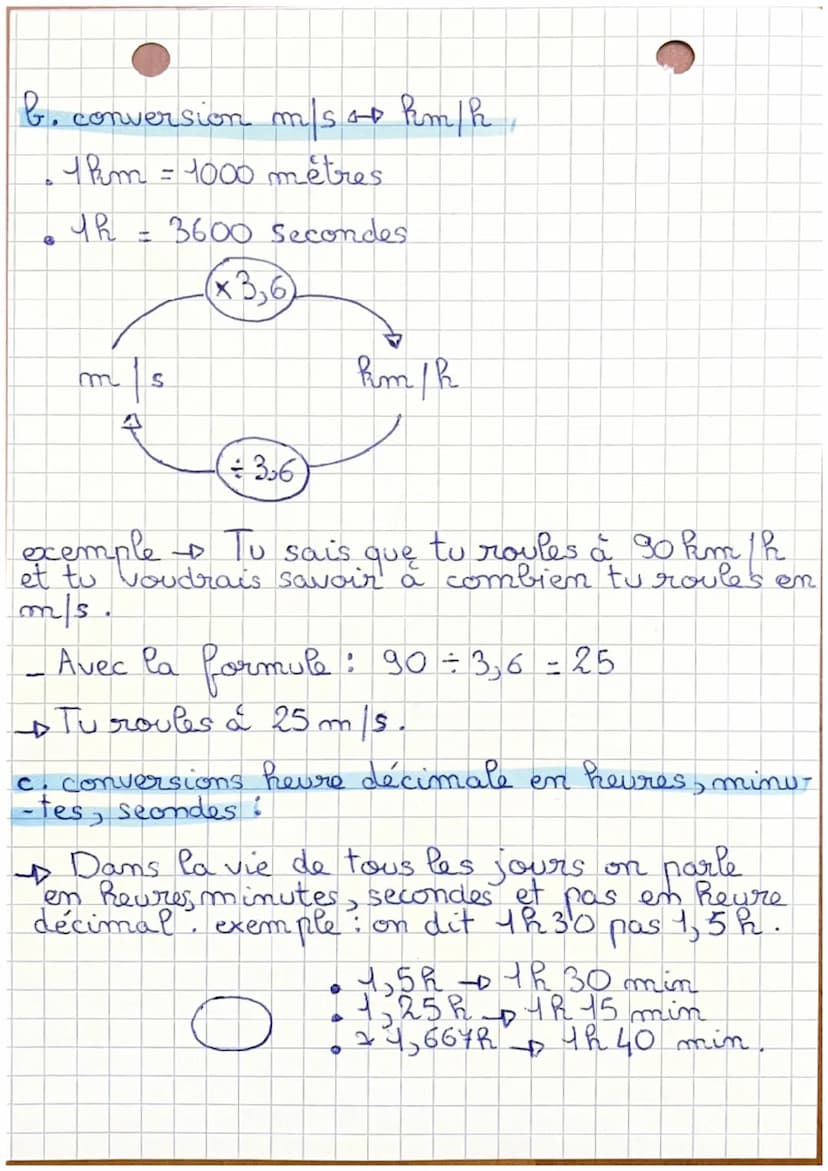 b. conversion m/s ↔ km/h
. 1km = 1000 mètres
. 1h = 3600 secondes
× 3,6
m/s km/h
÷ 3,6
exemple → Tu sais que tu roules à 90 km/h
et tu voudrais savoir à combien tu roules en
m/s.
- Avec la formule : 90 ÷ 3,6 = 25
→ Tu roules à 25 m/s.
c. conversions heure décimale en heures, minu-
-tes, secondes :
→ Dans la vie de tous les jours on parle
en heures, minutes, secondes et pas en heure
décimal. exemple : on dit 1h30 pas 1,5h.
. 1,5h → 1h 30 min
. 1,25h → 1h 15 min
. ≈ 1,667h → 1h 40 min.